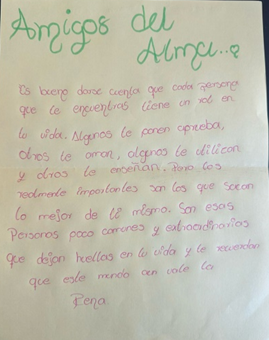 Amigos del
Alma..?
Es bueno darse cuenta que cada persona
que te encuentras tiene un rol en
tu vida. Algunos te ponen aprueba,
otros te aman, algunos te utilizan
y otros te enseñan. Pero los
realmente importantes son los que sacan
lo mejor de ti mismo. Son esas
Personas poco comunes y extraordinarias
que dejan huellas en tu vida y te recuerdan
que este mundo aun vale la
Pena.